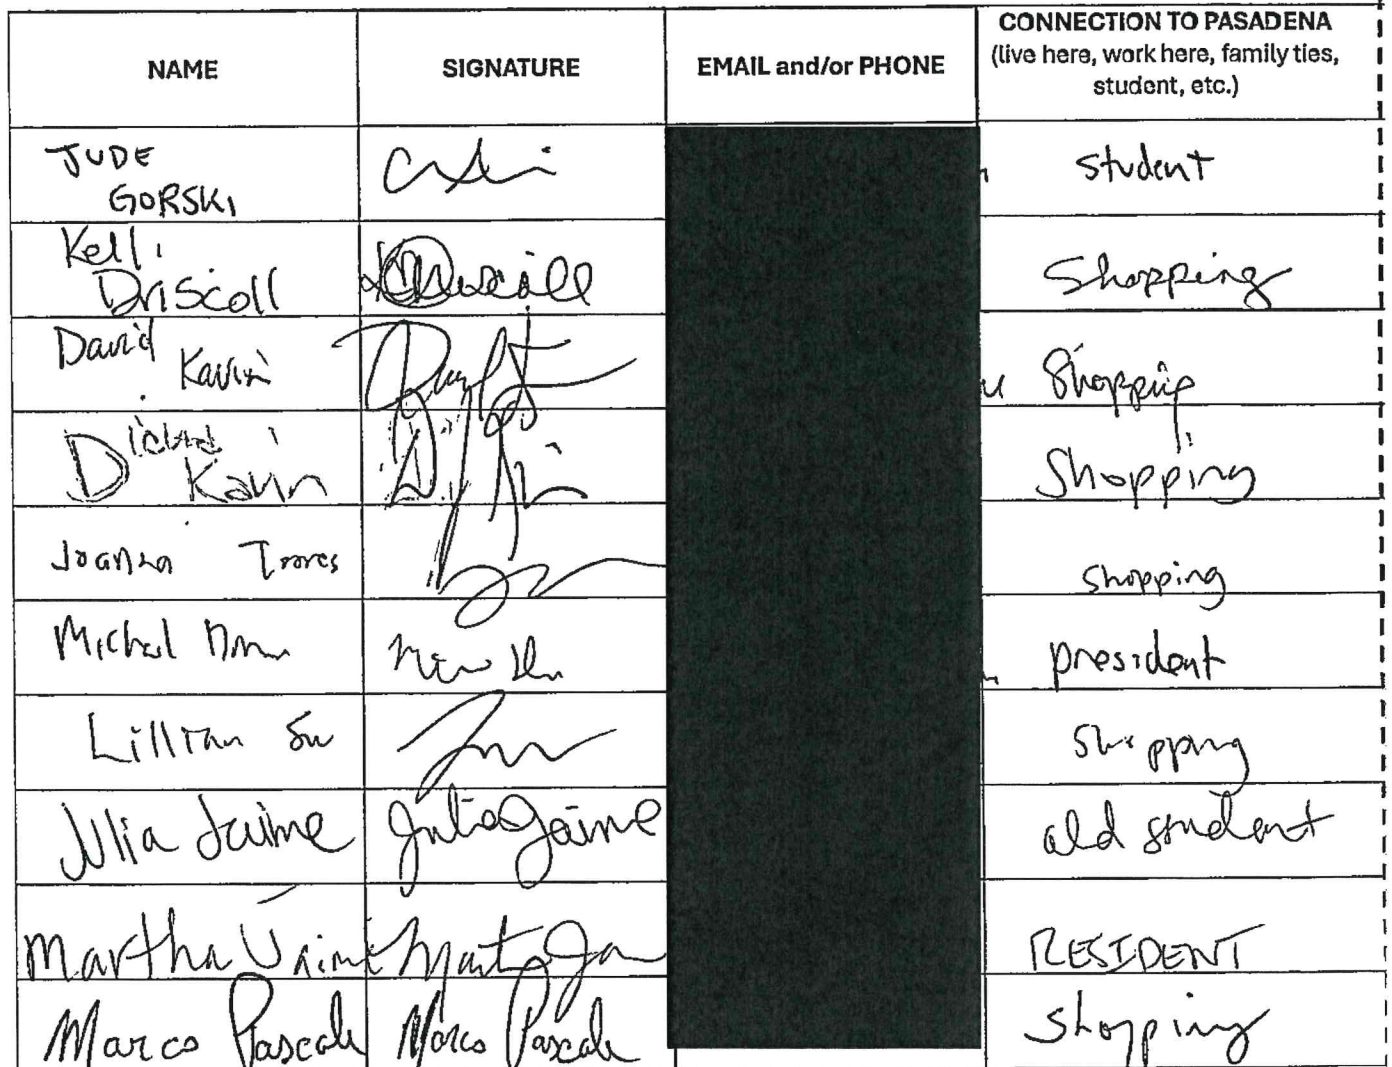 NAME
SIGNATURE
EMAIL and/or PHONE
CONNECTION TO PASADENA
(live here, work here, family ties,
student, etc.)
JUDE
GORSKI
student
Kelli
Driscoll
Shopping
David
Kavin
Shopping
Kavin
Shopping
Joanna
shopping
Michal
president
Lillian Su
shopping
Julia Jaime
Julia Jaime
old student
Martha Jaime
RESIDENT
Marco Pascale
Marco Pascale
shopping